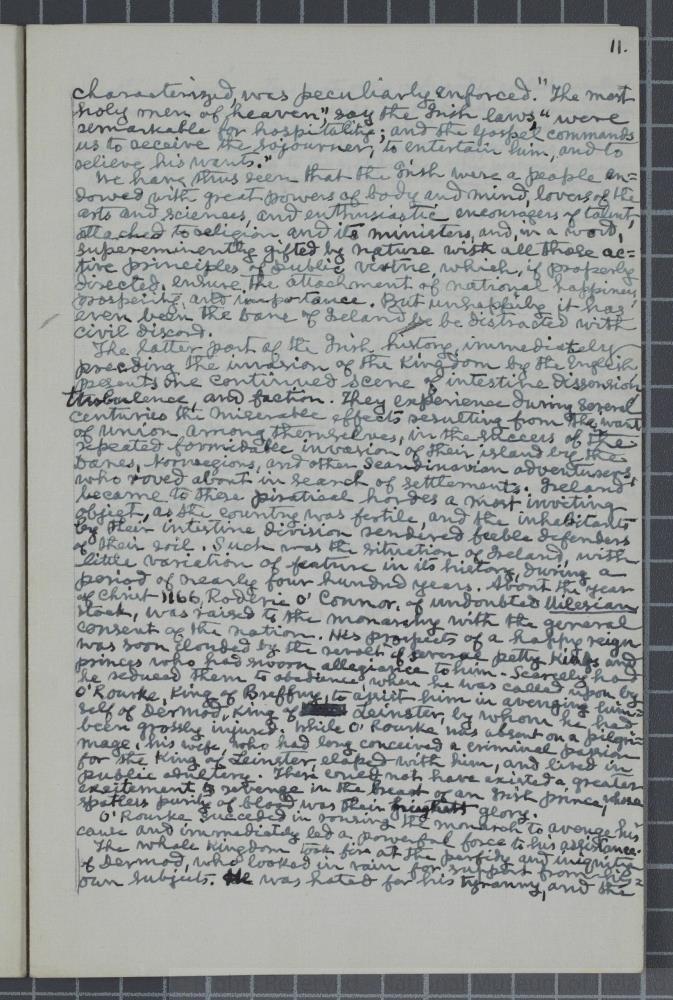 11.
characterized, was peculiarly enforced. "The most
holy men of heaven," say the Irish laws, "were
remarkable for hospitality; and the Gospel commands
us to receive the sojourner, to entertain him, and to
relieve his wants."
We have thus seen that the Irish were a people en=
dowed with great powers of body and mind, lovers of the
arts and sciences, and enthusiastic encouragers of talent,
attached to religion and its ministers, and, in a word,
supereminently gifted by nature with all those ac=
tive principles of public virtue, which, if properly
directed, ensure the attachment of national happiness,
prosperity, and importance. But unhappily it has
even been the bane of Ireland to be distracted with
civil discord.
The latter part of the Irish history, immediately
preceding the invasion of the Kingdom by the English
presents one continued scene of intestine dissension,
turbulence, and faction. They experience during several
centuries the miserable effects resulting from the want
of union among themselves, in the success of the
repeated formidable invasion of their island by the
Danes, Norwegions, and other Scandinavian adventurers,
who roved about in search of settlements. Ireland
became to these piratical hordes a most inviting
object, as the country was fertile, and the inhabitants
by their intestine division rendered feeble defenders
of their soil. Such was the situation of Ireland, with
little variation of feature in its history, during a
period of nearly four hundred years. About the year
of Christ 1166, Roderic O'Connor, of undoubted Milesian
stock, was raised to the monarchy with the general
consent of the nation. His prospects of a happy reign
was soon clouded by the revolt of several petty Kings and
princes who had sworn allegiance to him. Scarcely had
he reduced them to obedience, when he was called upon by
O'Rourke, King of Breffny, to assist him in avenging him=
self of Dermod, King of Leinster, by whom he had
been grossly injured. While O'Rourke was absent on a pilgri=
mage, his wife, who had long conceived a criminal passion
for the King of Leinster, eloped with him, and lived in
public adultery. There could not have existed a greater
excitement to revenge in the breast of an Irish prince, whose
spotless purity of blood was their brightest glory.
O'Rourke succeded in rousing the monarch to avenge his
cause and immediately led a powerful force to his assistance.
The whole Kingdom took fire at the perfidy and iniquity
of Dermod, who looked in vain for support from his
own subjects. He was hated for his tyranny, and the